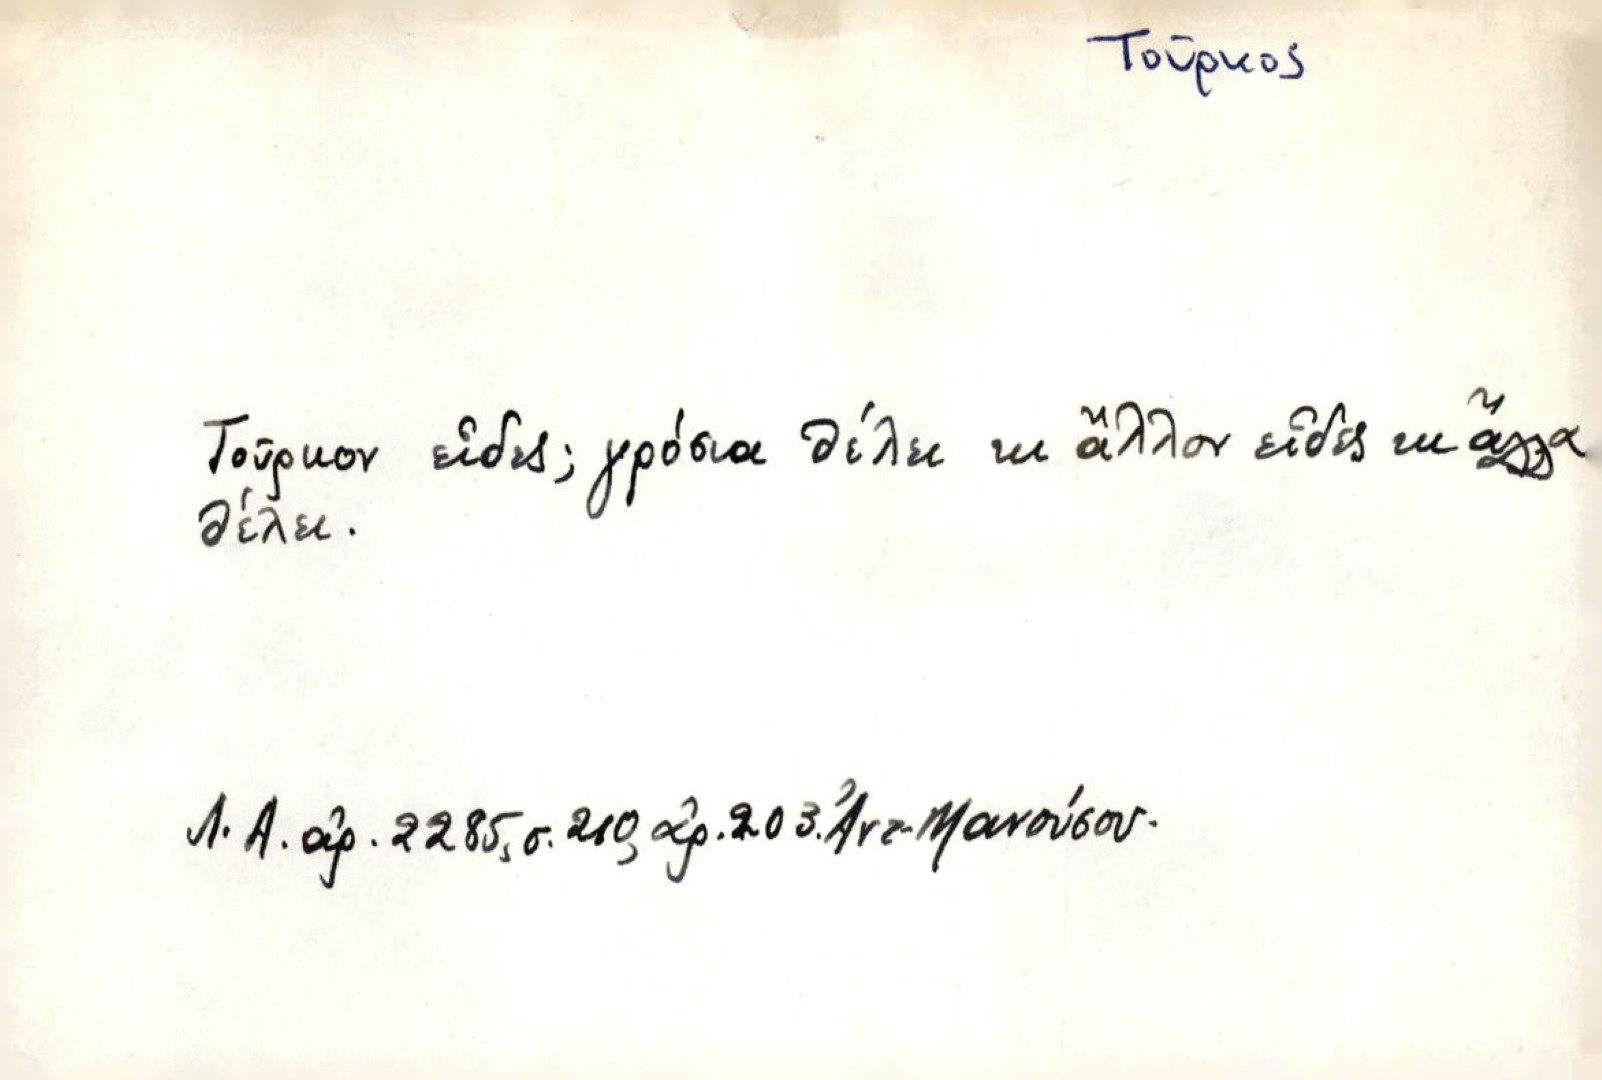 Τοῦρκος
Τοῦρκον εἶδες; γρόσια θέλει κι ἄλλον εἶδες κι ἄλλα
θέλει.
Λ. Α. ἀρ. 2285, σ. 210, ἀρ. 203. Ἀντ. Μανούσου.